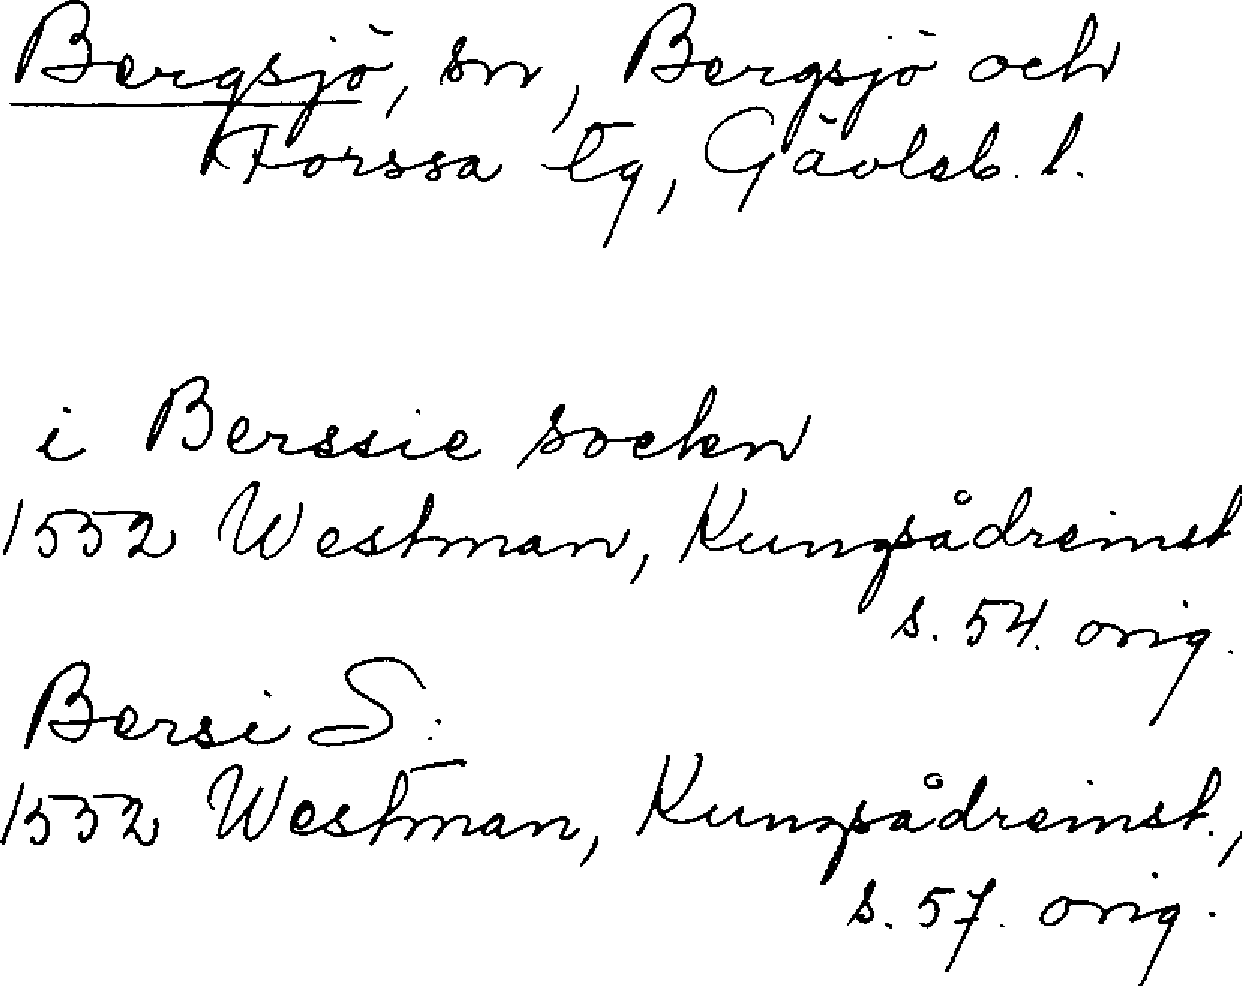 Bergsjö, sn, Bergsjö och
Forssa tg, Gävleb. l.
i Berssie sockn
1552 Westman, Kungsådreinst
s. 54. orig.
Bersi S.
1552 Westman, Kungsådreinst.,
s. 57. orig.